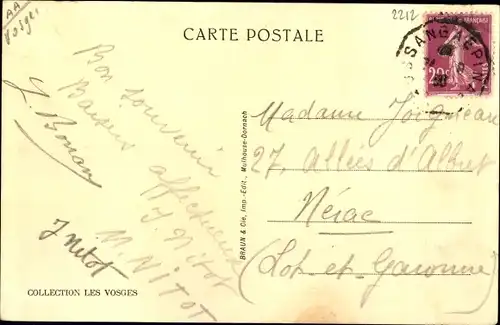 AA
Vosges
2212
CARTE POSTALE
BUSSANG EPINAL
20c
Bon souvenir
Baisers affectueux
J. Nitot
M. NITOT
J. Bonan
J Nitot
COLLECTION LES VOSGES
BRAUN & Cie, Imp.-Edit., Mulhouse-Dornach
Madame
27, Allées d'Albret
Nérac
(Lot-et-Garonne)